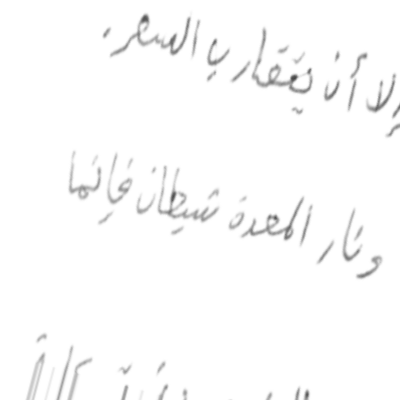 إلا أن يتقارب السعر.
ونار المعدة شيطان فإنما